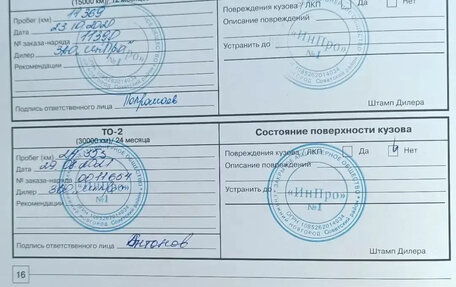 (15000 км)/ 12 месяца
Пробег (км) 11369
Дата 23 10 2020
№ заказа-наряда 11390
Дилер ЗАО "ИнПро"
Рекомендации
Подпись ответственного лица
Повреждения кузова / ЛКП Да Нет
Описание повреждений
Устранить до
«ИнПро»
№1
Штамп Дилера
ТО-2
(30000 км)/ 24 месяца
Пробег (км)
Дата
№ заказа-наряда 0011654
Дилер ЗАО
Рекомендации
№1
Подпись ответственного лица Антонов
Состояние поверхности кузова
Повреждения кузова / ЛКП Да Нет
Описание повреждений
Устранить до
«ИнПро»
№1
Штамп Дилера
16